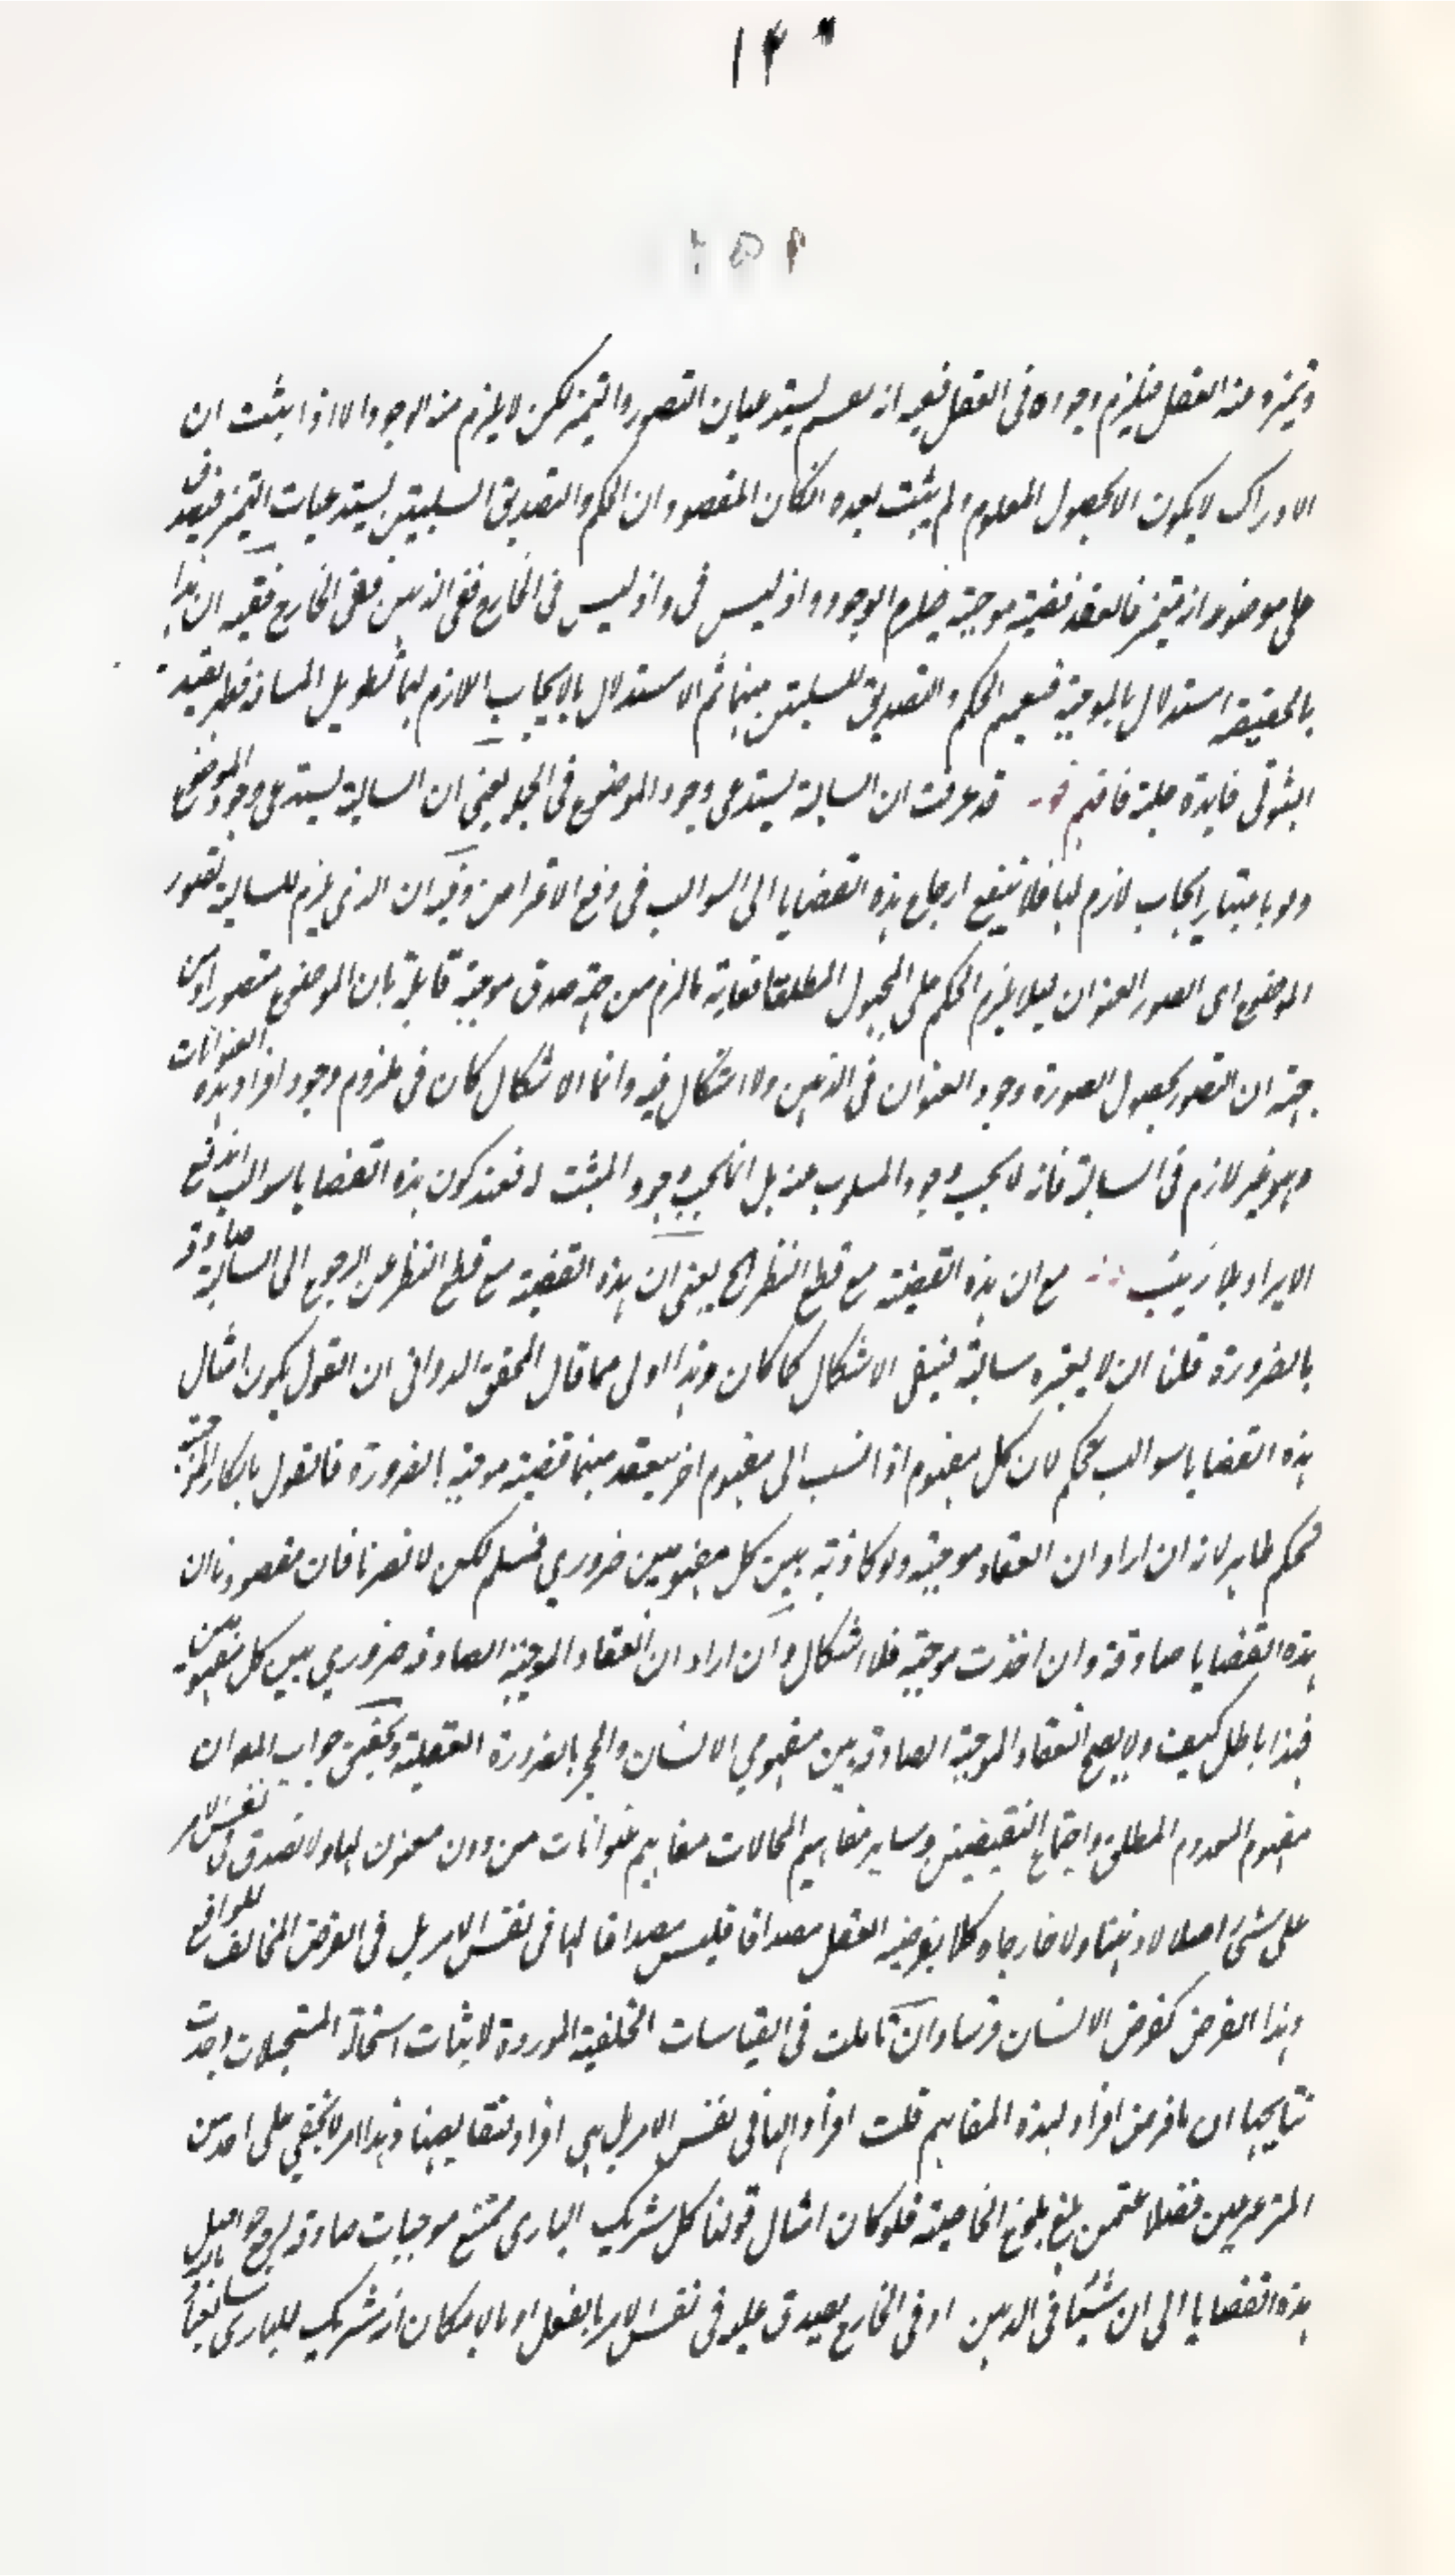 ١٤٠
وتميزه عند العقل فيلزم وجوده في العقل ففيه انه نعم يستدعيان التصور والتميز لكن لا يلزم منه الوجود الا اذا ثبت ان
الادراك لا يكون الا بحصول المعلوم ولم يثبت بعده المقصود ان الحكم والتصديق السلبيتين يستدعيان التميز فيصدق
على موضوعه انه متميز فالعقد قضية موجبة فيلزم الوجود واذ ليس في واذ ليس في الخارج ففي الذهن ففي الخارج ففيه ان هذا
بالحقيقة استدلال بالموجبة فتعميم الحكم والتصديق للسلبيتين بينهما ثم الاستدلال بالايجاب اللازم لها تطويل المسافة فلم يفيد
فايدة فافهم قد عرفت ان السالبة يستدعي وجود الموضوع في يعني ان السالبة يستدعي وجود الموضوع
ولو باعتبار ايجاب لازم لها فلا ينفع ارجاع هذه القضايا الى السوالب في دفع الاعتراض وفيه ان الذي يلزم للسالبة تصور
الموضوع اي العنوان ليلا يلزم الحكم على المجهول المطلق فغاية ما لزم من جهة صدق موجبة قايلة بان الموضوع متصور او من
جهة ان التصور بحصول الصورة وجود العنوان في الذهن ولا اشكال فيه وانما الاشكال كان في لزوم وجود افراد هذه العنوانات
وهو غير لازم في السالبة فانه لا يجب وجود المسلوب عنه بل انما يجب وجود المثبت له فعند كون هذه القضايا سوالب اندفع
الايراد بلا ريب مع ان هذه القضية مع قطع النظر الخ يعني ان هذه القضية مع قطع النظر عن الرجوع الى السالبة صادقة
بالضرورة فلنا ان لا يعتبره سالبة فيبقى الاشكال كما كان وهذا اولى مما قال المحقق الدواني ان القول بكون امثال
هذه القضايا سوالب تحكم لان كل مفهوم اذا انسب الى مفهوم اخر ينعقد بينهما قضية موجبة بالضرورة فالقول بانكار الموجبة
تحكم ظاهر لانه ان اراد ان انعقاد موجبة ولو كاذبة بين كل مفهومين ضروري فمسلم لكن لا تضرنا فان مقصودنا ان
هذه القضايا صادقة وان اخذت موجبة فلا اشكال وان اراد ان انعقاد الموجبة الصادقة ضروري بين كل مفهومين
فهذا باطل كيف ولا يصح انعقاد الموجبة الصادقة بين مفهومي الانسان والحجر بالضرورة العقلية وتحقيق جواب المص ان
مفهوم المعدوم المطلق واجتماع النقيضين وساير مفاهيم المحالات مفاهيم عنوانات من دون معنون لها ولا تصدق في نفس الامر
على شئ اصلا لا ذهنا ولا خارجا وكلما يفرضه العقل مصداقا فليس مصداقا لها في نفس الامر بل في الفرض المخالف للواقع
وهذا الفرض كفرض الانسان فرسا وان تاملت في القياسات الخلفية الموردة لاثبات استحالة المستحيلات وجدت
نتايجها ان ما فرض افراد لهذه المفاهيم قلت افرادا لها في نفس الامر بل هي افراد لنقايضها وهذا الامر لا يخفى على احد من
المترعرعين فضلا عمن بلغ بلوغ الخاصية فلو كان امثال قولنا كل شريك الباري ممتنع موجبات صادقة لرجع حواصيل
هذه القضايا الى ان شيئا في الذهن او في الخارج يصدق عليه في نفس الامر بالفعل او بالامكان انه شريك للباري